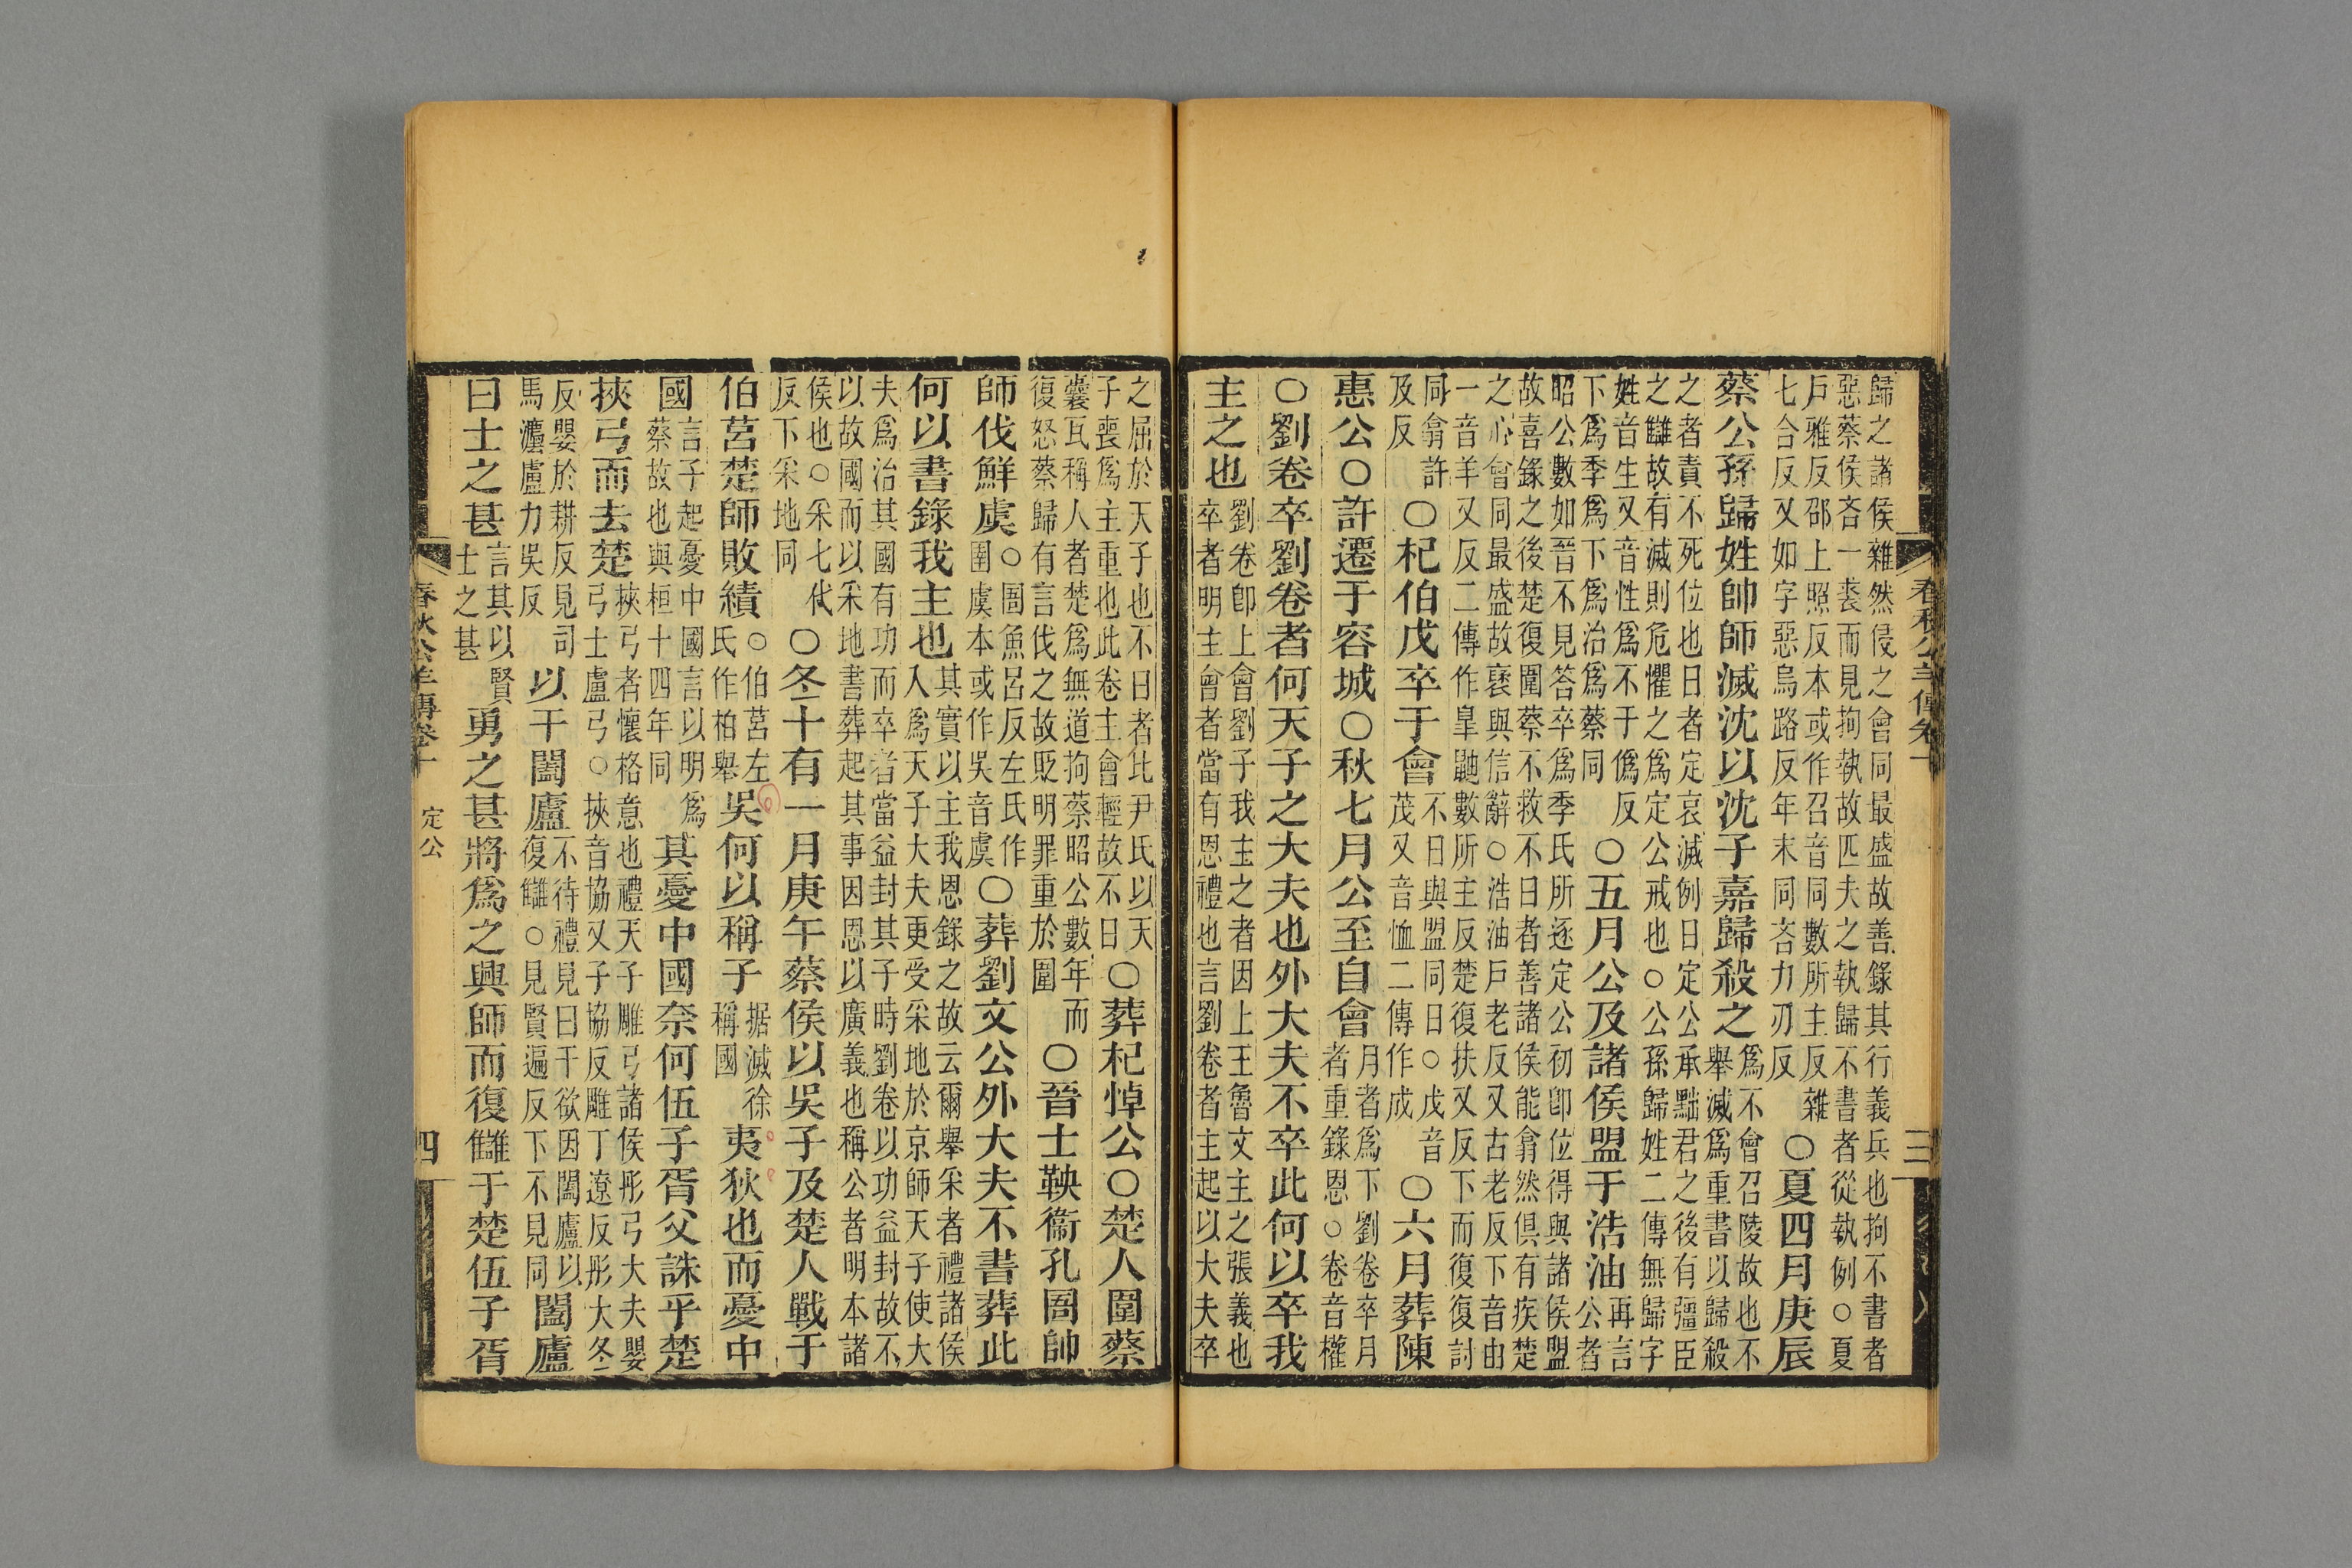 春秋公羊傳卷十一
三
歸之諸侯雜然侵之會同最盛故善錄其行義兵也拘不書者
惡蔡侯吝一裘而見拘執故匹夫之執歸不書者從執例○夏
戶雅反邵上照反本或作召音同數所主反雜
七合反又如字惡烏路反年末同吝力刃反
○夏四月庚辰
蔡公孫歸姓帥師滅沈以沈子嘉歸殺之
爲不會召陵故也不
舉滅爲重書以歸殺
之者責不死位也日者定哀滅例日定公承黜君之後有彊臣
之讎故有滅則危懼之爲定公戒也○公孫歸姓二傳無歸字
姓音生又音性爲不于僞反
下爲季爲下爲治爲蔡同
○五月公及諸侯盟于浩油
再言
公者
昭公數如晉不見答卒爲季氏所逐定公初卽位得與諸侯盟
故喜錄之後楚復圍蔡不救不日者善諸侯能翕然俱有疾楚
之心會同最盛故襃與信辭○浩油戶老反又古老反下音由
一音羊又反二傳作皐鼬數所主反楚復扶又反下而復復討
同翕許
及反
○杞伯戊卒于會
不日與盟同日○戊音
茂又音恤二傳作成
○六月葬陳
惠公○許遷于容城○秋七月公至自會
月者爲下劉卷卒月
者重錄恩○卷音權
○劉卷卒劉卷者何天子之大夫也外大夫不卒此何以卒我
主之也
劉卷卽上會劉子我主之者因上王魯文主之張義也
卒者明主會者當有恩禮也言劉卷者主起以大夫卒
之屈於天子也不日者比尹氏以天
子喪爲主重也此卷主會輕故不日
○葬杞悼公○楚人圍蔡
囊瓦稱人者楚爲無道拘蔡昭公數年而
復怒蔡歸有言伐之故貶明罪重於圍
○晉士鞅衞孔圄帥
師伐鮮虞
○圄魚呂反左氏作
圉虞本或作吳音虞
○葬劉文公外大夫不書葬此
何以書錄我主也
其實以主我恩錄之故云爾舉采者禮諸侯
入爲天子大夫更受采地於京師天子使大
夫爲治其國有功而卒者當益封其子時劉卷以功益封故不
以故國而以采地書葬起其事因恩以廣義也稱公者明本諸
侯也○采七代
反下采地同
○冬十有一月庚午蔡侯以吳子及楚人戰于
伯莒楚師敗績
○伯莒左
氏作柏舉
吳何以稱子
据滅徐
稱國
夷狄也而憂中
國
言子起憂中國言以明爲
蔡故也與桓十四年同
其憂中國奈何伍子胥父誅乎楚
挾弓而去楚
挾弓者懷格意也禮天子雕弓諸侯彤弓大夫嬰
弓士盧弓○挾音協又子協反雕丁遼反彤大冬
反嬰於耕反見司
馬灋盧力吳反
以干闔廬
不待禮見曰干欲因闔廬以
復讎○見賢遍反下不見同
闔廬
曰士之甚
言其以賢
士之甚
勇之甚將爲之興師而復讎于楚伍子胥
春秋公羊傳卷十一
定公
四